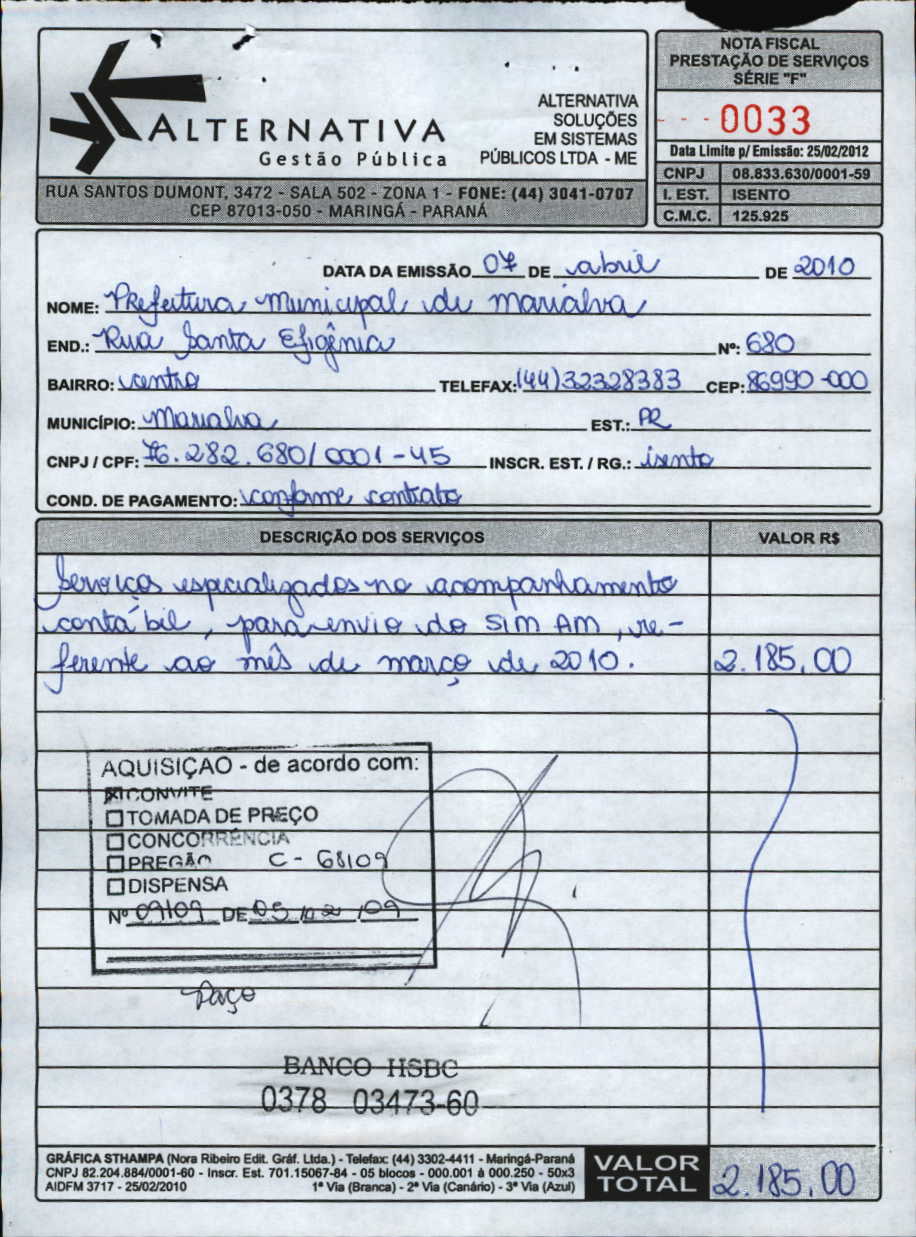 NOTA FISCAL
PRESTAÇÃO DE SERVIÇOS
SÉRIE "F"
0033
Data Limite p/ Emissão: 25/02/2012
CNPJ 08.833.630/0001-59
I. EST. ISENTO
C.M.C. 125.925
ALTERNATIVA
Gestão Pública
ALTERNATIVA
SOLUÇÕES
EM SISTEMAS
PÚBLICOS LTDA - ME
RUA SANTOS DUMONT, 3472 - SALA 502 - ZONA 1 - FONE: (44) 3041-0707
CEP 87013-050 - MARINGÁ - PARANÁ
DATA DA EMISSÃO 07 DE abril DE 2010
NOME: Prefeitura municipal de marialva
END.: Rua Santa Efigênia Nº: 680
BAIRRO: centro TELEFAX: (44)32328383 CEP: 86990-000
MUNICÍPIO: Marialva EST.: PR
CNPJ / CPF: 76.282.680/0001-45 INSCR. EST. / RG.: isento
COND. DE PAGAMENTO: conforme contrato
DESCRIÇÃO DOS SERVIÇOS VALOR R$
Serviços especializados no acompanhamento
contábil, para envio do SIM AM, re-
ferente ao mês de março de 2010. 2.185,00
AQUISIÇÃO - de acordo com:
CONVITE
TOMADA DE PREÇO
CONCORRÊNCIA
PREGÃO C - 68109
DISPENSA
Nº 09109 DE 05 /02 /09
Paço
BANCO HSBC
0378 03473-60
GRÁFICA STHAMPA (Nora Ribeiro Edit. Gráf. Ltda.) - Telefax: (44) 3302-4411 - Maringá-Paraná
CNPJ 82.204.884/0001-60 - Inscr. Est. 701.15067-84 - 05 blocos - 000.001 à 000.250 - 50x3
AIDFM 3717 - 25/02/2010 1ª Via (Branca) - 2ª Via (Canário) - 3ª Via (Azul)
VALOR
TOTAL 2.185,00